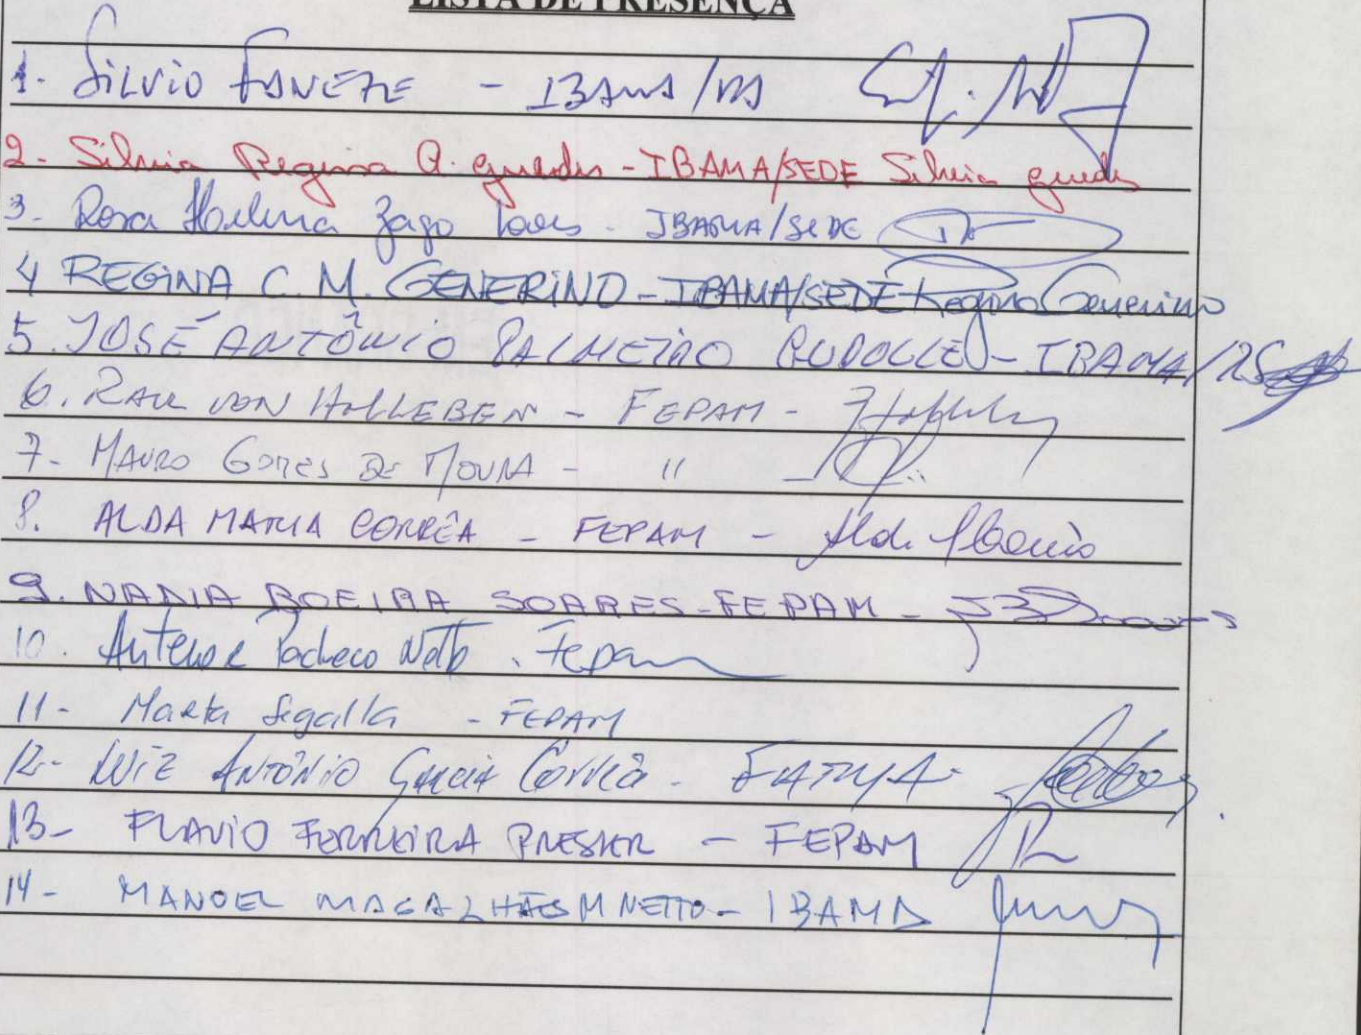 LISTA DE PRESENÇA
1. SILVIO - IBAMA/
2- Silvia Regina A. Guedes - IBAMA/SEDE Silvia Guedes
3- Rosa Helena Zago Loes - IBAMA/SEDE
4 REGINA C. M. GENERINO - IBAMA/SEDE Regina Generino
5. JOSÉ ANTÔNIO PALMEIRO - IBAMA/RS
6. RAUL VON HOLLEBEN - FEPAM -
7- MAURO GOMES DE MOURA - "
8. ALDA MARIA CORRÊA - FEPAM -
9. NADIA BOEIRA SOARES - FEPAM -
10. Antenor Pacheco Netto. Fepam
11- Marta Segalla - FEPAM
12- LUIZ ANTÔNIO Garcia Corrêa - FATMA -
13- FLAVIO FERREIRA PRESSER - FEPAM
14- MANOEL MAGALHÃES M NETTO - IBAMA